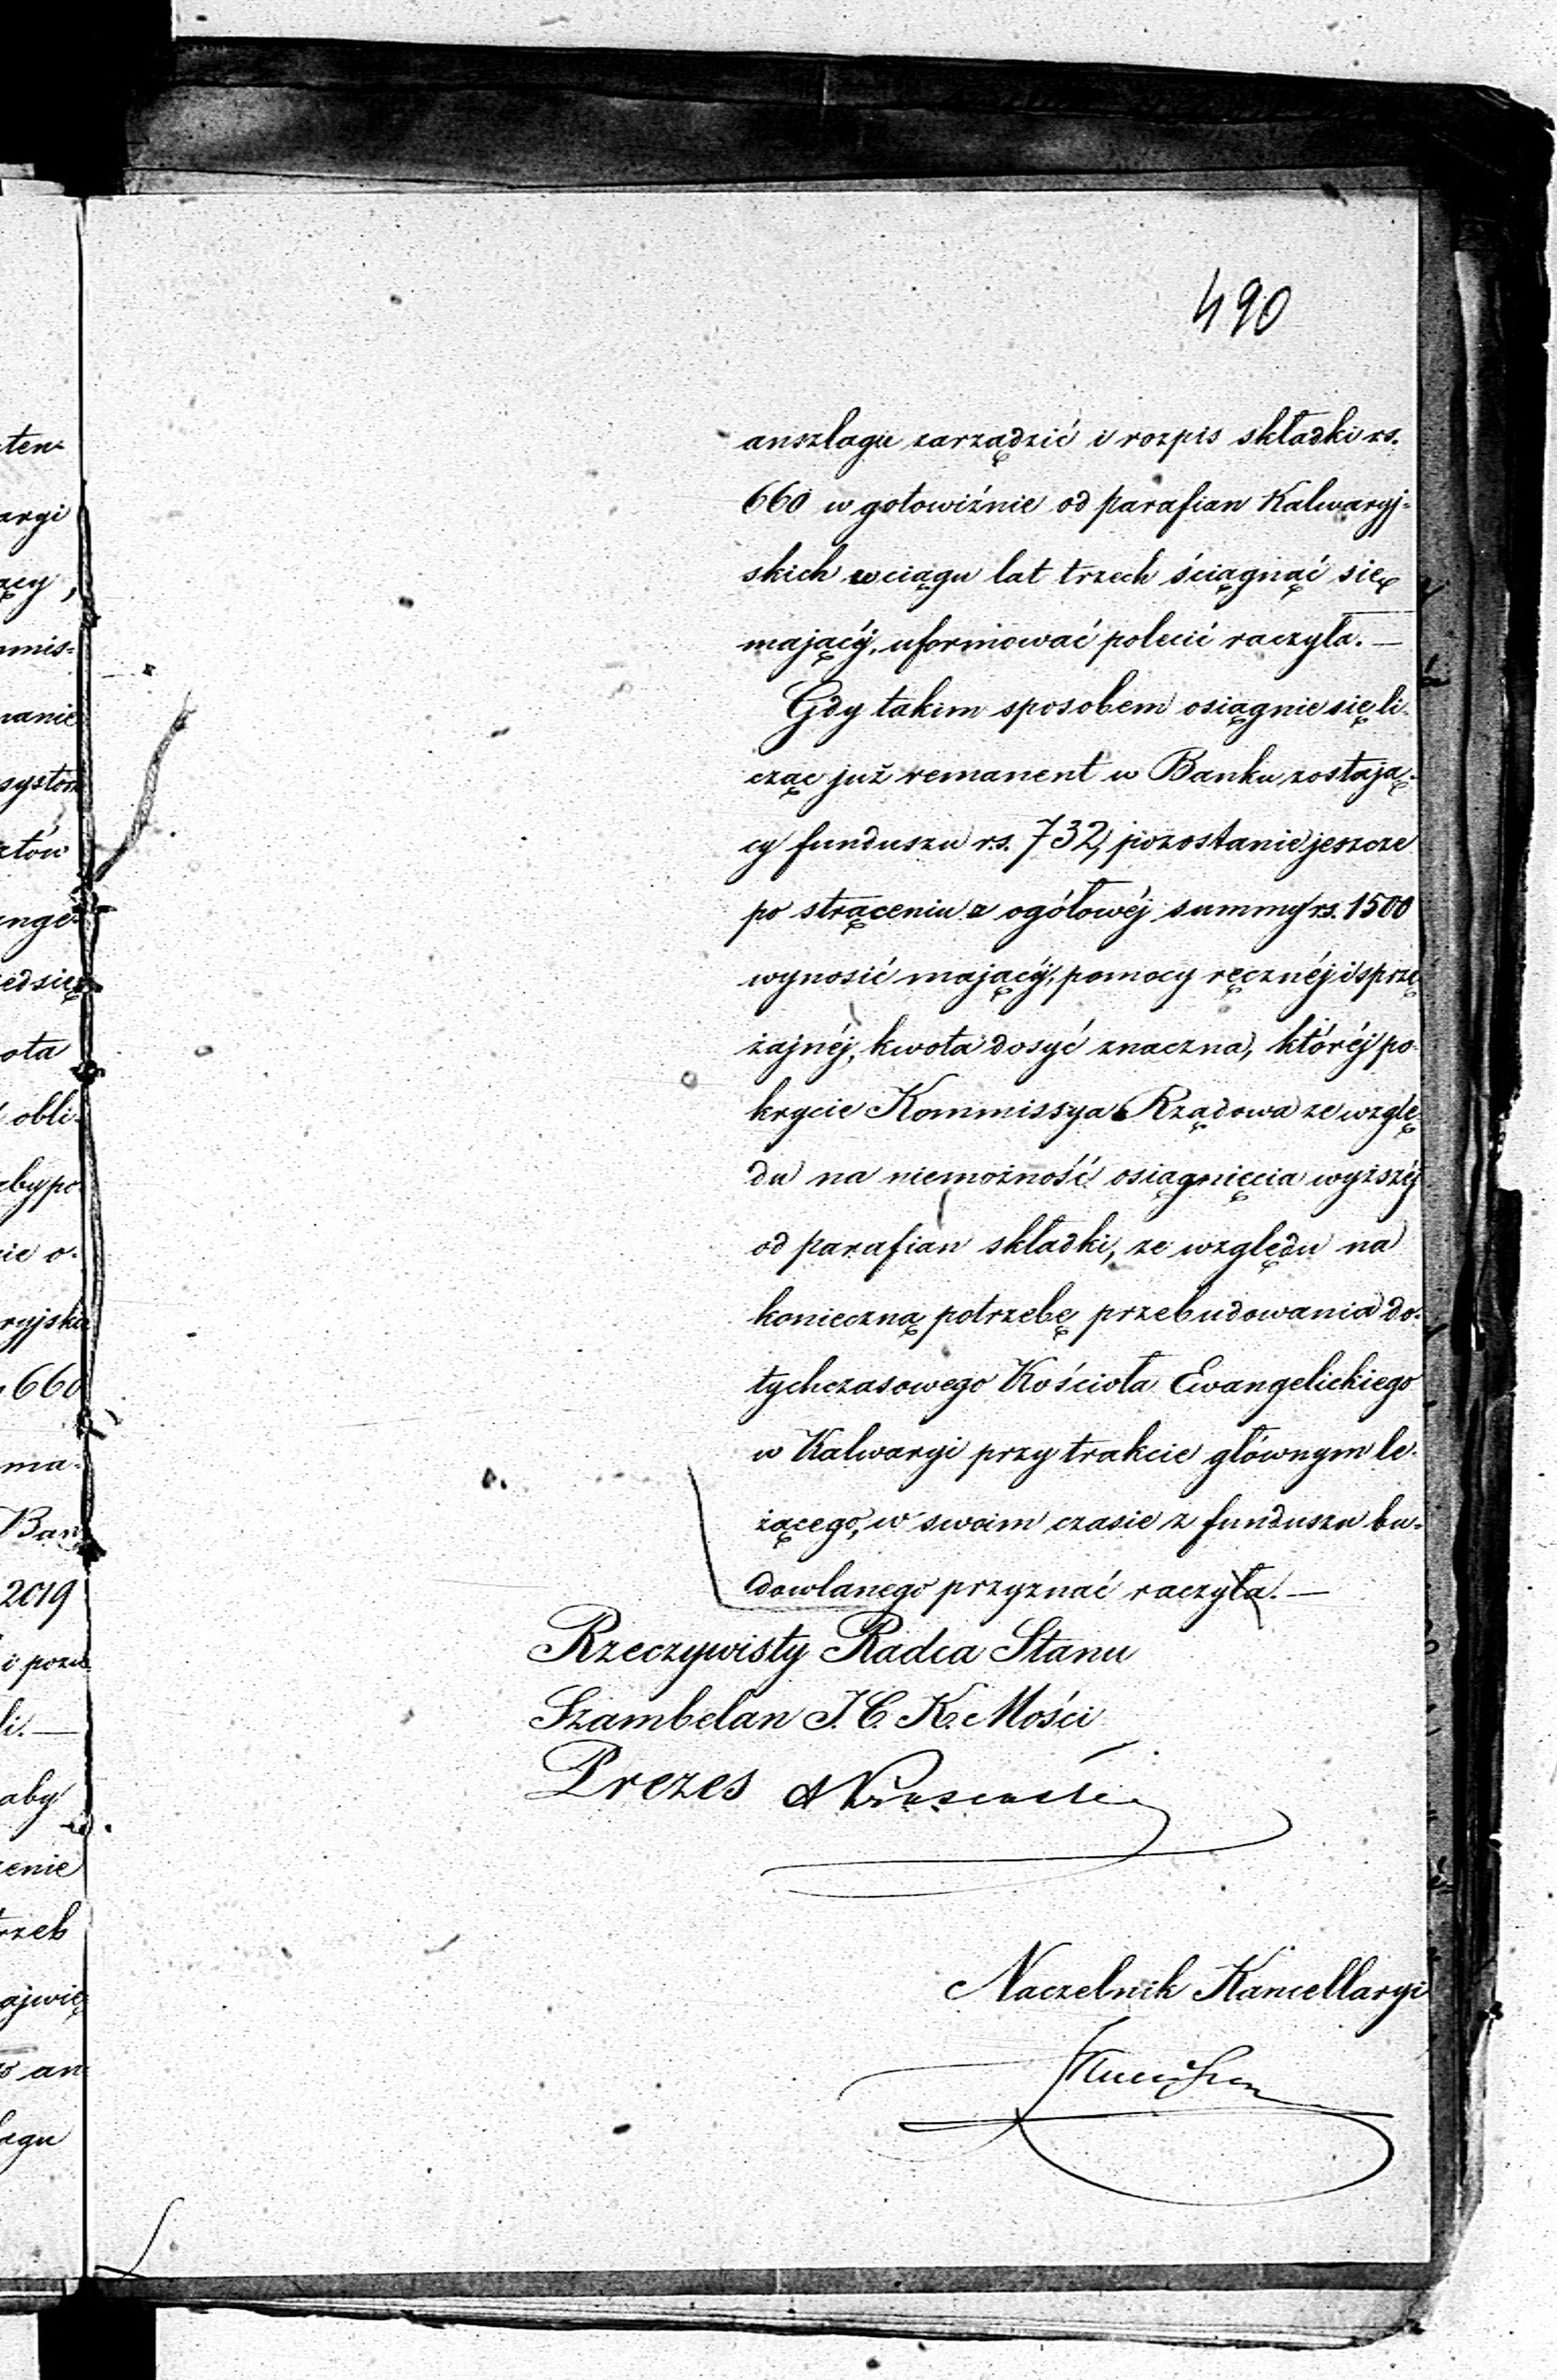 490
anszlagu zarządzić i rozpis składki rs.
660 w gotowiźnie od parafian Kalwaryj-
skich wciągu lat trzech ściągnąć się
mający, uformować polecić raczyła. —
Gdy takim sposobem osiągnie się li-
cząc już remanent w Banku zostają-
cy funduszu rs. 732, pozostanie jeszcze
po strąceniu z ogółowéj summy rs. 1500
wynosić mającéj, pomocy ręcznéj i sprzę
żajnéj, kwota dosyć znaczna, któréj po-
krycie Kommissya Rządowa ze wzglę-
du na niemożność osiągnięcia wyższéj
od parafian składki, ze względu na
konieczną potrzebę przebudowania do-
tychczasowego Kościoła Ewangelickiego
w Kalwaryi przy trakcie głównym le-
żącego, w swoim czasie z funduszu bu-
dowlanego przyznać raczyła. —
Rzeczywisty Radca Stanu
Szambelan J. C. K. Mości
Prezes
Naczelnik Kancellaryi